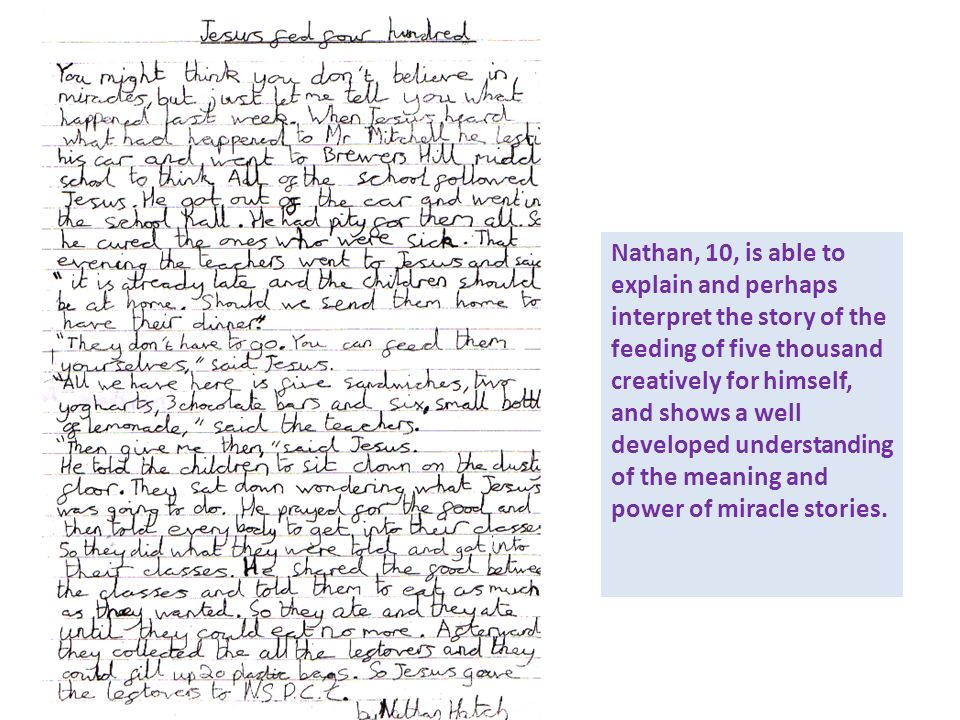 Jesus fed four hundred
You might think you don't believe in
miracles, but just let me tell you what
happened last week. When Jesus heard
what had happened to Mr Mitchell he
his car and went to Brewers Hill midd
school to think All of the school followed
Jesus. He got out of the car and went in
the school hall. He had pity for them all. So
he cured the ones who were sick. That
evening the teachers went to Jesus and said
"it is already late and the children should
be at home. Should we send them home to
have their dinner?"
"They don't have to go. You can feed them
yourselves," said Jesus.
"All we have here is five sandwiches, two
yogharts, 3 chocolate bars and six, small bottl
of lemonade," said the teachers.
"Then give me then," said Jesus.
He told the children to sit down on the dust
floor. They sat down wondering what Jesus
was going to do. He prayed for the food and
then told every body to get into their classe
So they did what they were told and got into
their classes. He shared the food betwee
the classes and told them to eat as much
as they wanted. So they ate and they ate
until they could eat no more. Afterward
they collected the all the leftovers and they
could fill up 20 plastic bags. So Jesus gave
the leftovers to N.S.P.C.C.
by Nathan Hatch
Nathan, 10, is able to
explain and perhaps
interpret the story of the
feeding of five thousand
creatively for himself,
and shows a well
developed understanding
of the meaning and
power of miracle stories.